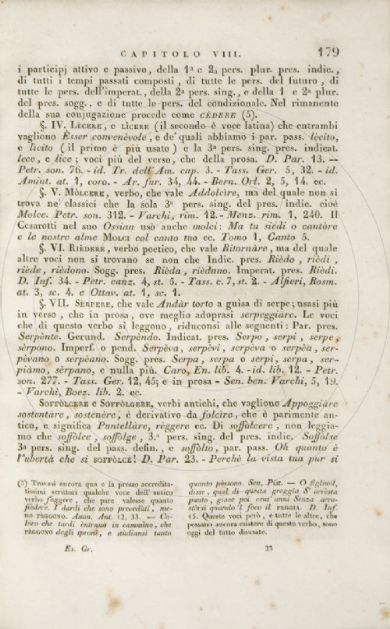 CAPITOLO VIII. 179
i participj attivo e passivo, della 1ª e 2ª pers. plur. pres. indic.,
di tutti i tempi passati composti, di tutte le pers. del futuro, di
tutte le pers. dell'imperat., della 2ª pers. sing., e della 1 e 2ª plur.
del pres. sogg., e di tutte le pers. del condizionale. Nel rimanente
della sua conjugazione procede come CÈDERE (5).
§. IV. LÈCERE, e LÌCERE (il secondo è voce latina) che entrambi
vagliono Èsser convenévole, e de' quali abbiamo i par. pass. lècito,
e lìcito (il prime è più usato) e la 3ª pers. sing. pres. indicat.
lece, e lice; voci più del verso, che della prosa. D. Par. 13. —
Petr. son. 76. - id. Tr. dell'Am. cap. 3. - Tass. Ger. 5, 32. - id.
Amint. at. 1, coro. - Ar. fur. 34, 44. - Bern. Orl. 2, 5, 14. ec.
§. V. MÒLCERE, verbo, che vale Addolcìre, ma del quale non si
trova ne' classici che la sola 3ª pers. sing. del pres. indic. cioè
Molce. Petr. son. 312. - Varchi, rim. 12. - Menz. rim. 1, 240. Il
Cesarotti nel suo Ossian usò anche molci: Ma tu siedi o cantòre
e le nostre alme MOLCI col canto tuo ec. Tomo 1, Canto 5.
§. VI. RIÈDERE, verbo poetico, che vale Ritornàre, ma del quale
altre voci non si trovano se non che Indic. pres. Rièdo, rièdi,
riède, rièdono. Sogg. pres. Rièda, rièdano. Imperat. pres. Rièdi.
D. Inf. 34. - Petr. canz. 4, st. 5. - Tass. c. 7, st. 2. - Alfieri, Rosm.
at. 3, sc. 4. e Ottav. at. 1, sc. 1.
§. VII. SÈRPERE, che vale Andàr torto a guisa di serpe; usasi più
in verso, che in prosa, ove meglio adoprasi serpeggiàre. Le voci
che di questo verbo si leggono, riduconsi alle seguenti: Par. pres.
Serpènte. Gerund. Serpèndo. Indicat. pres. Serpo, serpi, serpe,
sèrpono. Imperf. o pend. Serpèva, serpèvi, serpèva o serpèa, ser-
pèvano o serpèano. Sogg. pres. Serpa, serpa o serpi, serpa, ser-
piàmo, sèrpano, e nulla più. Caro, En. lib. 4. - id. lib. 12. - Petr.
son. 277. - Tass. Ger. 12, 45; e in prosa - Sen. ben. Varchi, 5, 19.
- Varchi, Boez. lib. 2. ec.
SOFFÒLCERE e SOFFÒLGERE, verbi antichi, che vagliono Appoggiàre
sostentàre, sostenère, è derivativo da folcìre, che è parimente an-
tico, e significa Puntellàre, règgere ec. Di soffòlcere, non leggia-
mo che soffòlce, soffòlge, 3.ª pers. sing. del pres. indic. Soffòlse
3ª pers. sing. del pass. defin., e soffòlto, par. pass. Oh quanto è
l'ubertà che si SOFFÒLCE! D. Par. 23. - Perchè la vista tua pur si
(5) Trovasi ancora qua e là presso accredita-
tissimi scrittori qualche voce dell'antico
verbo fièggere, che pure valesse quanto
fièdere. I dardi che sono preveduti, me-
no FIÈGGONO. Amm. Ant. 12, 33. — Co-
loro che tardi entrano in cammino, che
FIÈGGONO degli sproni, e studiansi tanto
quanto pòssono. Sen. Pist. — O figliuol,
disse, qual di questa greggia S'arresta
punto, giace poi cent'anni Senza arro-
starsi quando 'l foco il FEGGIA. D. Inf.
15. Queste voci però, e tutte le altre, che
possano ancora esistere di questo verbo, sono
oggi del tutto disusate.
Es. Gr. 23